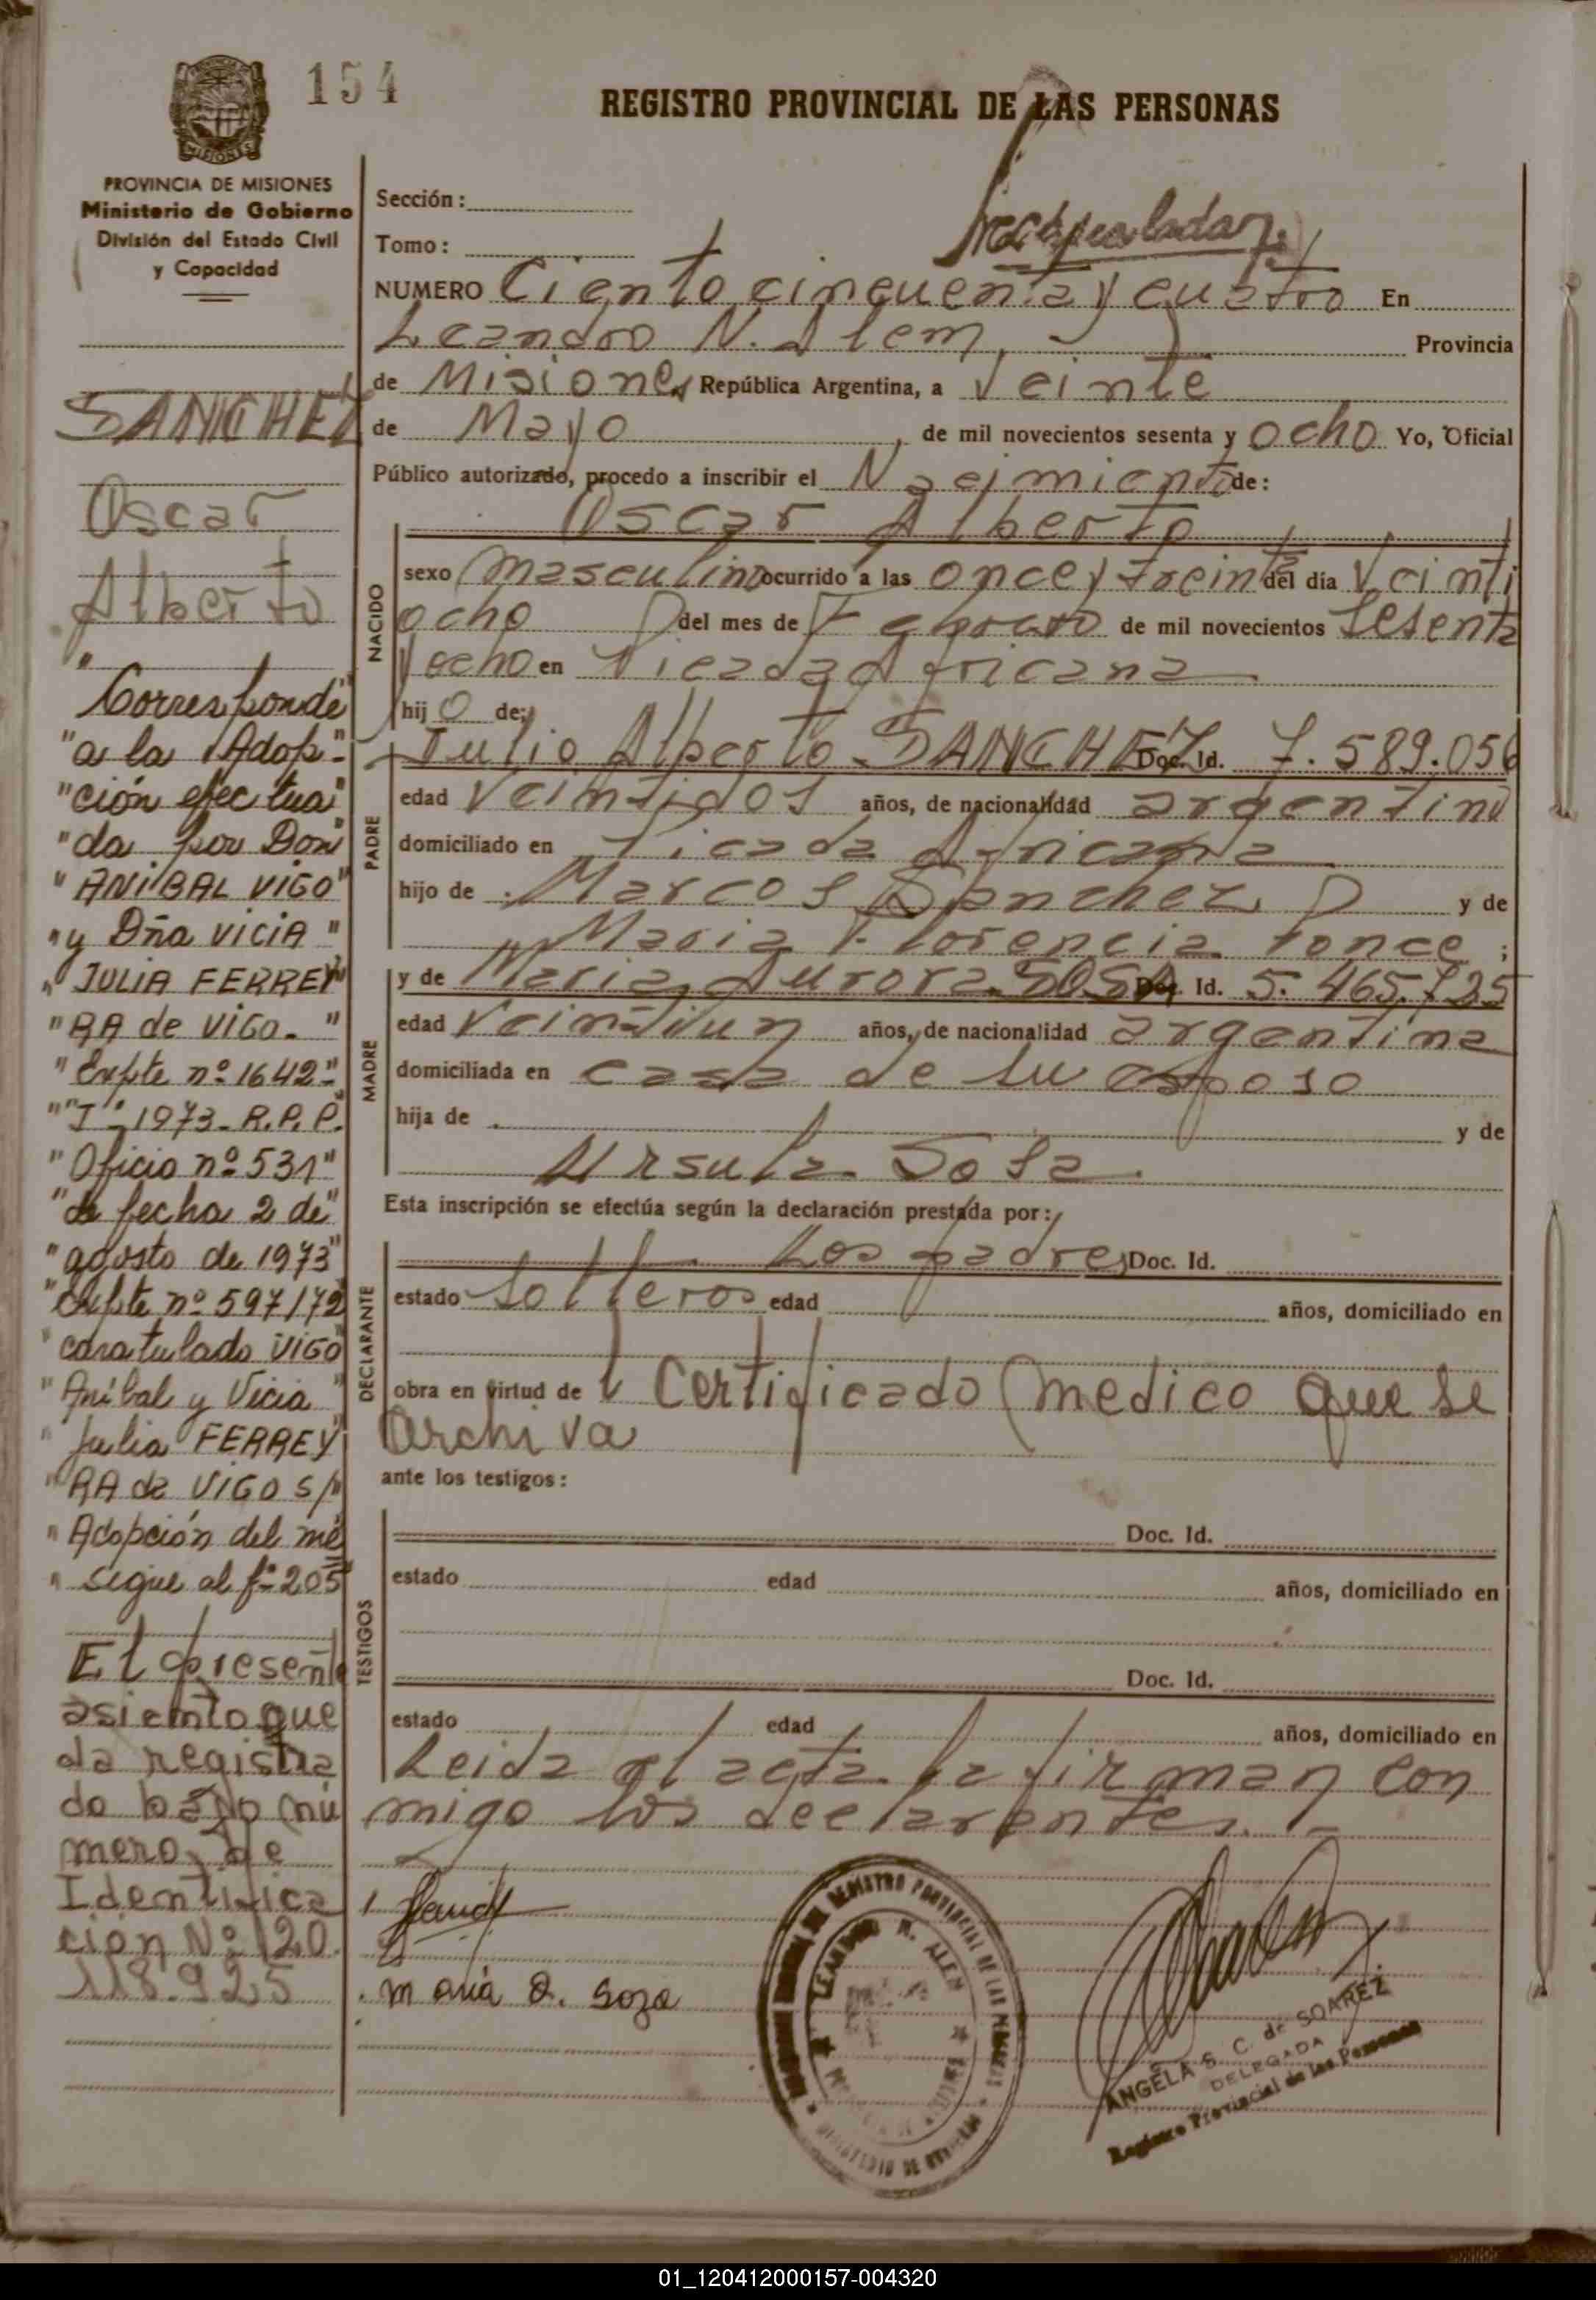 154
REGISTRO PROVINCIAL DE LAS PERSONAS
MISIONES
PROVINCIA DE MISIONES
Ministerio de Gobierno
División del Estado Civil
y Capacidad
SANCHEZ
Oscar
Alberto
"
"Corresponde"
"a la Adop-"
"ción efectua"
"da por Don"
"ANIBAL VIGO"
"y Dña VICIA"
"JULIA FERREY"
"RA de VIGO.-"
"Expte nº 1642-"
""I"-1973-R.P.P.
"Oficio nº 531"
"de fecha 2 de"
"agosto de 1973"
"Expte nº 597/72
"caratulado VIGO
"Aníbal y Vicia"
"Julia FERREY
"RA de VIGO s/"
"Adopción del me
"sigue al fº 205"
El presente
asiento que
da registra
do bajo nu
mero de
Identifica
cion Nº 20.
118.925
Sección:
Tomo:
NUMERO Ciento cincuenta y cuatro En
Leandro N. Alem, Provincia
de Misiones República Argentina, a Veinte
de Mayo, de mil novecientos sesenta y ocho Yo, Oficial
Público autorizado, procedo a inscribir el Nacimiento de:
Oscar Alberto
NACIDO
sexo masculino ocurrido a las once y treinta del día Veinti
ocho del mes de Febrero de mil novecientos Sesenta
y ocho en Picada Africana
hijo de:
PADRE
Julio Alberto SANCHEZ Doc. Id. 7.589.056
edad Veintidos años, de nacionalidad argentino
domiciliado en Picada Africana
hijo de Marcos Sanchez y de
Maria Florencia Ponce;
MADRE
y de Maria Aurora SOSA Doc. Id. 5.465.725
edad Veintiun años, de nacionalidad argentina
domiciliada en casa de su esposo
hija de y de
Ursula Sosa.
Esta inscripción se efectúa según la declaración prestada por:
DECLARANTE
Los padres Doc. Id.
estado solteros edad años, domiciliado en
obra en virtud de Certificado medico que se
archiva
ante los testigos:
TESTIGOS
Doc. Id.
estado edad años, domiciliado en
Doc. Id.
estado edad años, domiciliado en
Leida el acta la firman con
migo los declarantes.-
Maria A. Soza
REGISTRO PROVINCIAL DE LAS PERSONAS
LEANDRO N. ALEM
MINISTERIO DE GOBIERNO
ANGELA S. C. de SOAREZ
DELEGADA
Registro Provincial de las Personas
01_120412000157-004320